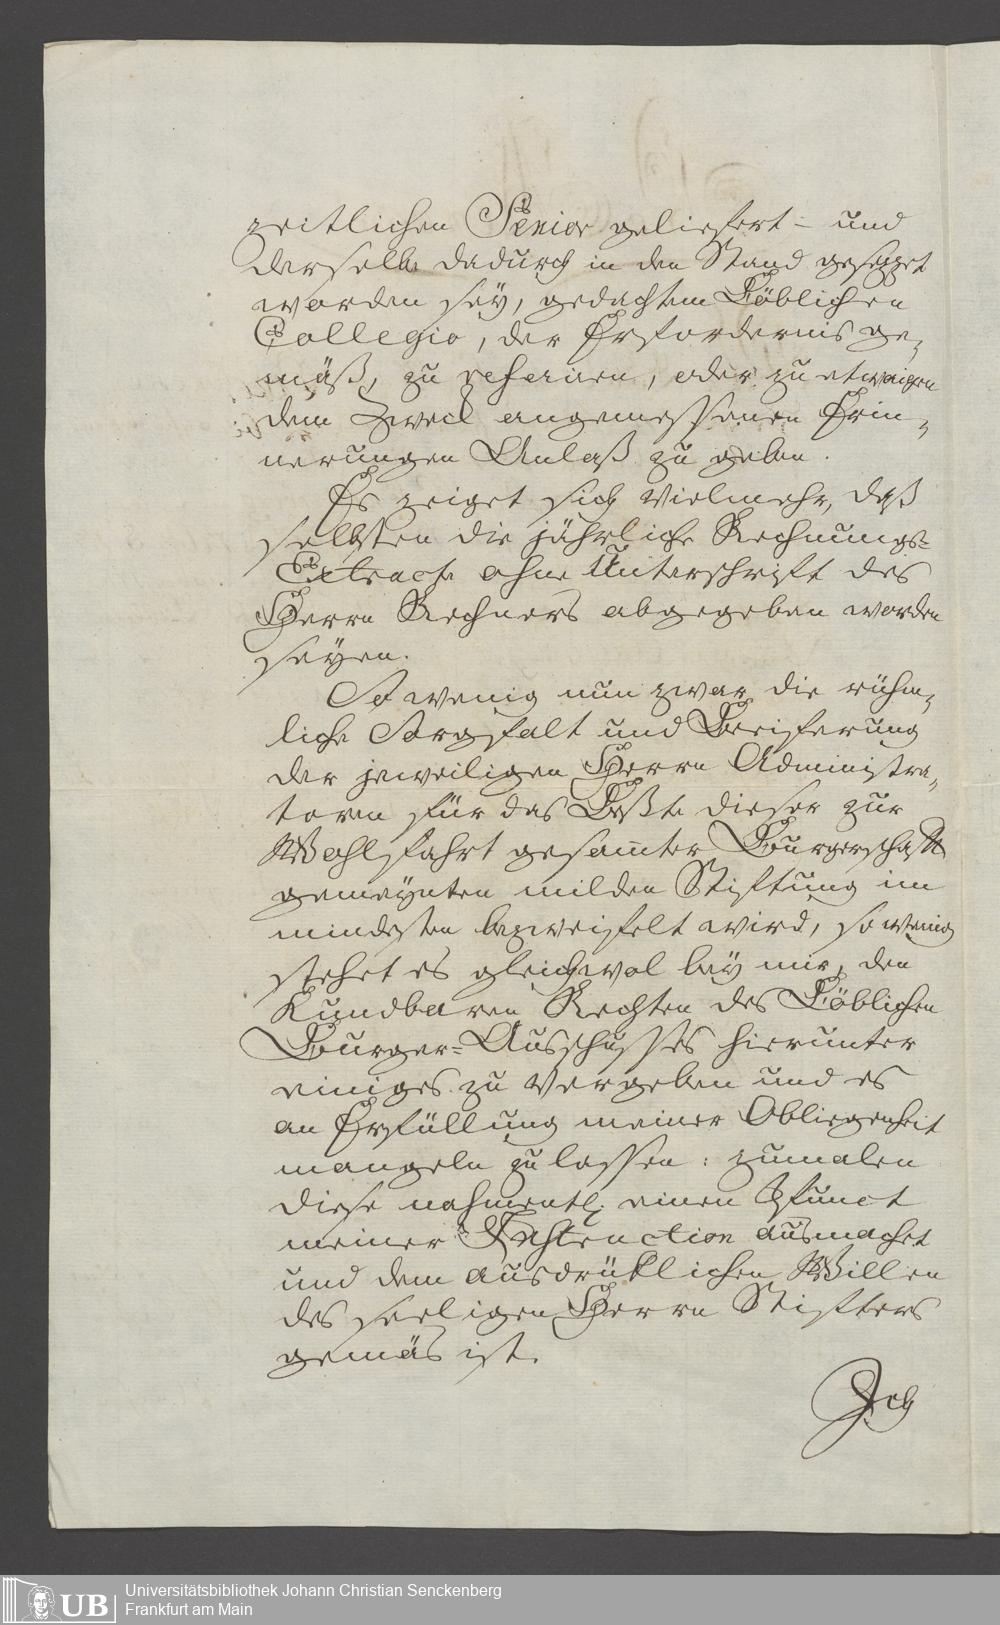 zeitlichen Senior geliefert - und
derselbe dadurch in den Stand gesezzet
worden sey, gedachtem Löblichen
Collegio, der Erfordernis ge-
mäß, zu referiren, oder zu etwaigen
dem Zweck angemessenen Erin-
nerungen Anlaß zu geben.
Es zeiget sich vielmehr, daß
selbsten die jährliche Rechnungs-
Extracte ohne Unterschrift des
Herrn Rechners abgegeben worden
seyen.
So wenig nun zwar die rühm-
liche Sorgfalt und Beeiferung
der jeweiligen Herrn Administra-
toren für das Beßte dieser zur
Wohlfahrt gesam̅ter Burgerschafft
gemeynten milden Stiftung im
mindesten bezweifelt wird, so wenig
stehet es gleichwol bey mir, den
Kundbaren Rechten des Löblichen
Burger-Ausschusses hierunter
einiges zu vergeben und es
an Erfüllung meiner Obliegenheit
mangeln zu lassen: zumalen
diese nahmentl. einen Punct
meiner Instruction ausmachet
und dem ausdrüklichen Willen
des seeligen Herrn Stifters
gemäs ist.
Ich
UB
Universitätsbibliothek Johann Christian Senckenberg
Frankfurt am Main